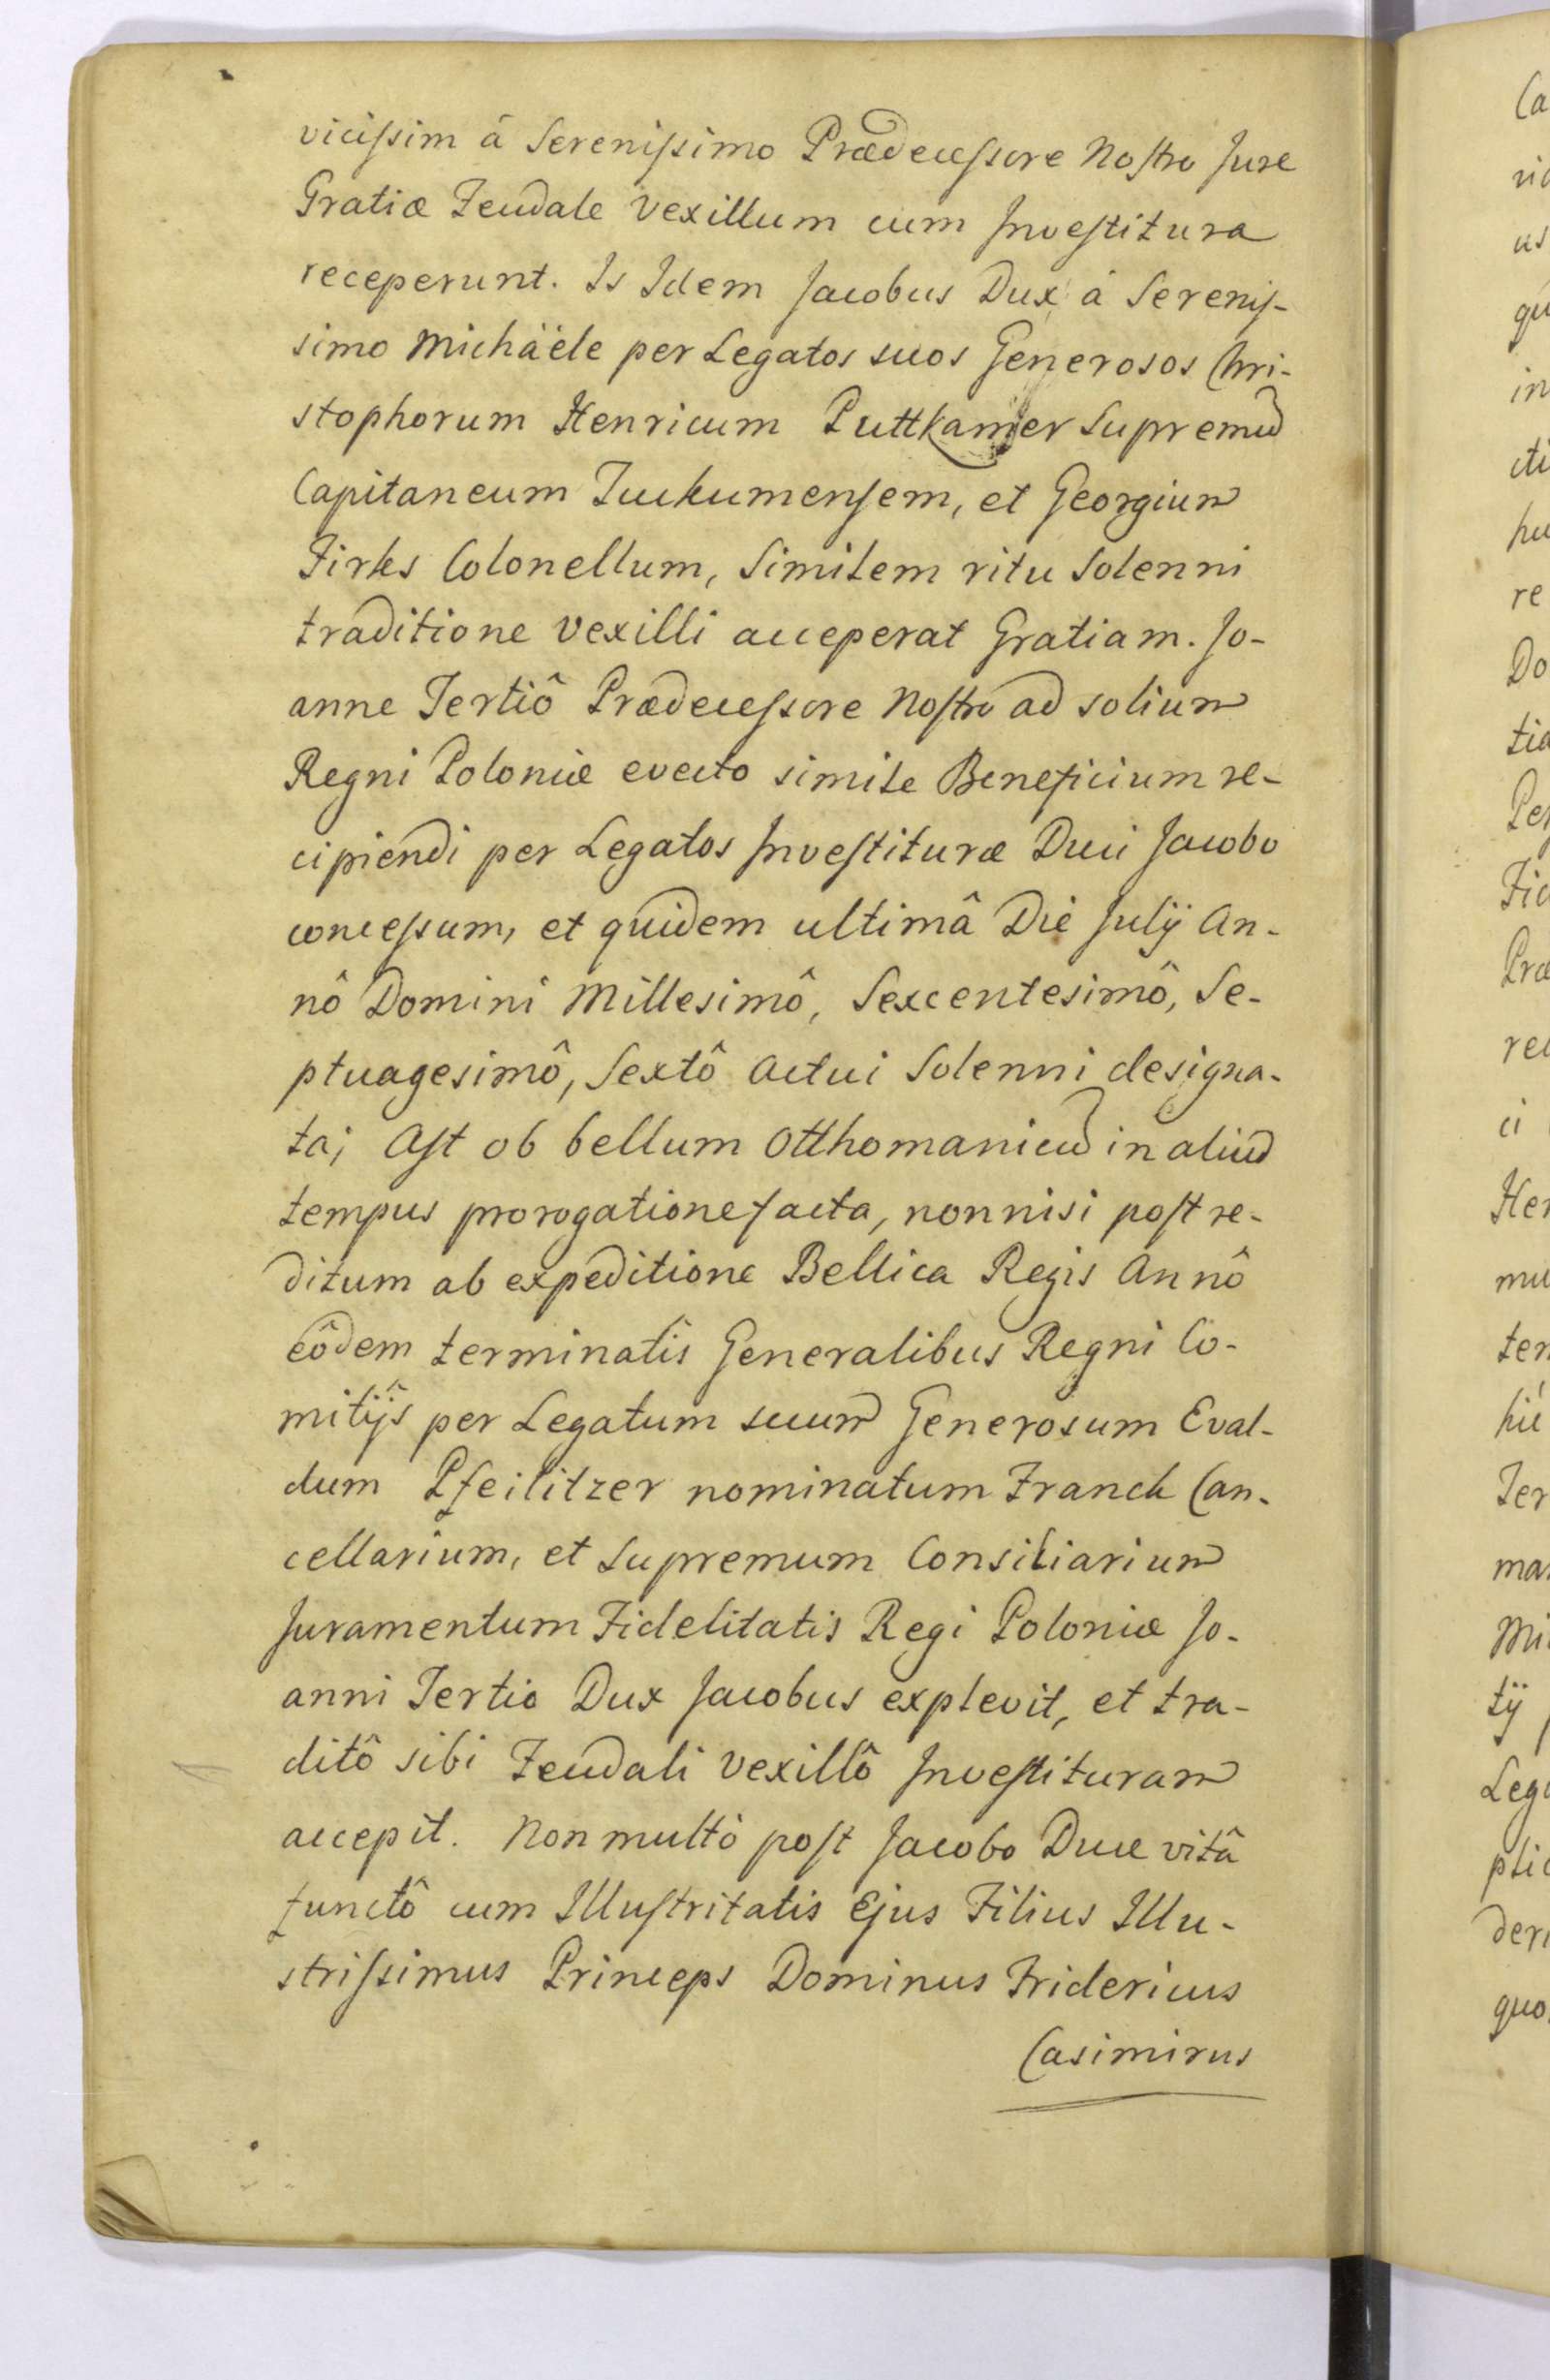 viciſsim á Sereniſsimo Prædeceſsore Noſtro Jure
Gratiæ Feudale Vexillum cum Inveſtitura
receperunt. Is Idem Jacobus Dux á Sereniſ-
simo Michäéle per Legatos suos Generosos Chri-
stophorum Henricum Puttkamer Supremũ
Capitaneum Tuckumenſem, et Georgium
Firks Colonellum, Similem ritu Solenni
traditione Vexilli acceperat Gratiam. Jo-
anne Tertiô Prædeceſsore Noſtro ad solium
Regni Poloniæ evecto simile Beneficium re-
cipiendi per Legatos Inveſtituræ Duci Jacobo
conceſsum, et quidem ultimâ Die Julij An-
nô Domini Millesimô, Sexcentesimô, Se-
ptuagesimô, Sextô Actui Solenni designa-
ta; Aſt ob bellum Otthomanicũ in aliud
tempus prorogatione facta, nonnisi poſt re-
ditum ab expeditione Bellica Regis Annô
eôdem terminatîs Generalibus Regni Co-
mitijs per Legatum suum Generosum Eval-
dum Pfeilitzer nominatum Franck Can-
cellarium, et Supremum Consiliarium
Juramentum Fidelitatis Regi Poloniæ Jo-
anni Tertio Dux Jacobus explevit, et tra-
ditô sibi Feudali Vexillô Inveſtituram
accepit. Non multò poſt Jacobo Duce vitâ
functô cum Illuſtritatis Ejus Filius Illu-
striſsimus Princeps Dominus Fridericus
Casimirus